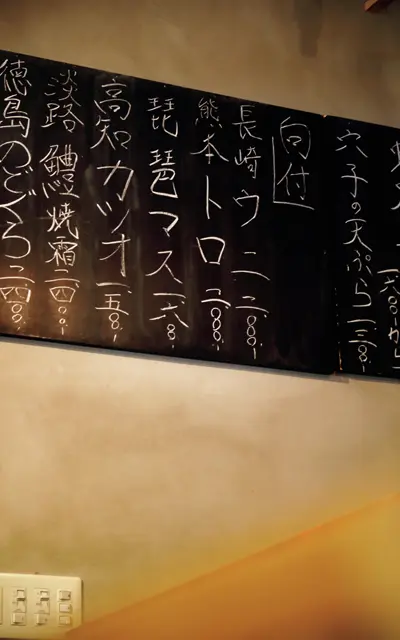 穴子の天ぷら 一三〇〇!
向付
長崎ウニ 二二〇〇!
熊本トロ 二〇〇〇!
琵琶マス 一六〇〇!
高知カツオ 一五〇〇!
淡路鱧焼霜 二四〇〇!
徳島のどぐろ 二四〇〇!